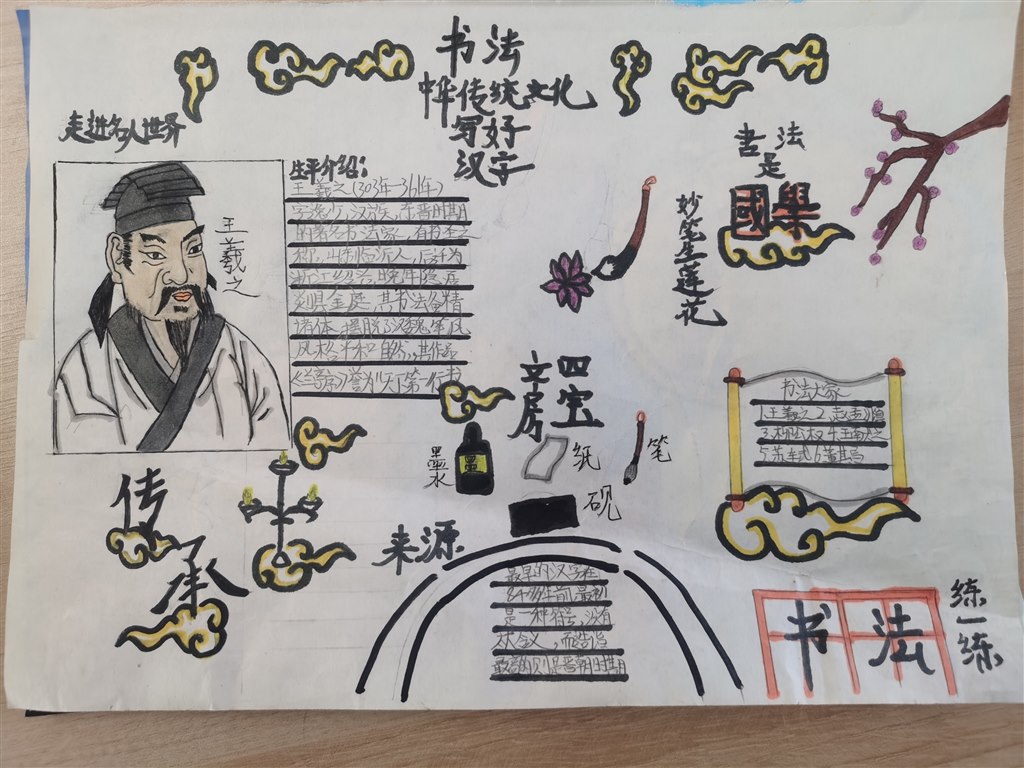 书法
中华传统文化
写好
汉字
走进名人世界
王羲之
生平介绍:
王羲之(303年—361年)
字逸少,汉族,东晋时期
的著名书法家,有书圣之
称,
人,后
晚年隐居
剡县金庭,其书法
诸体,摆脱了汉魏笔风
风格平和自然,
《兰亭序》誉为"天下第一行书
书法
是
國學
妙笔生莲花
文房
四宝
墨水
墨
纸
笔
砚
书法大家
1.王羲之2.赵孟頫
3.柳公权4.王献之
5.苏轼6.董其昌
传
承
来源
最早的汉字在
年前,最初
是一种符号,没有
时期
书法
练一练